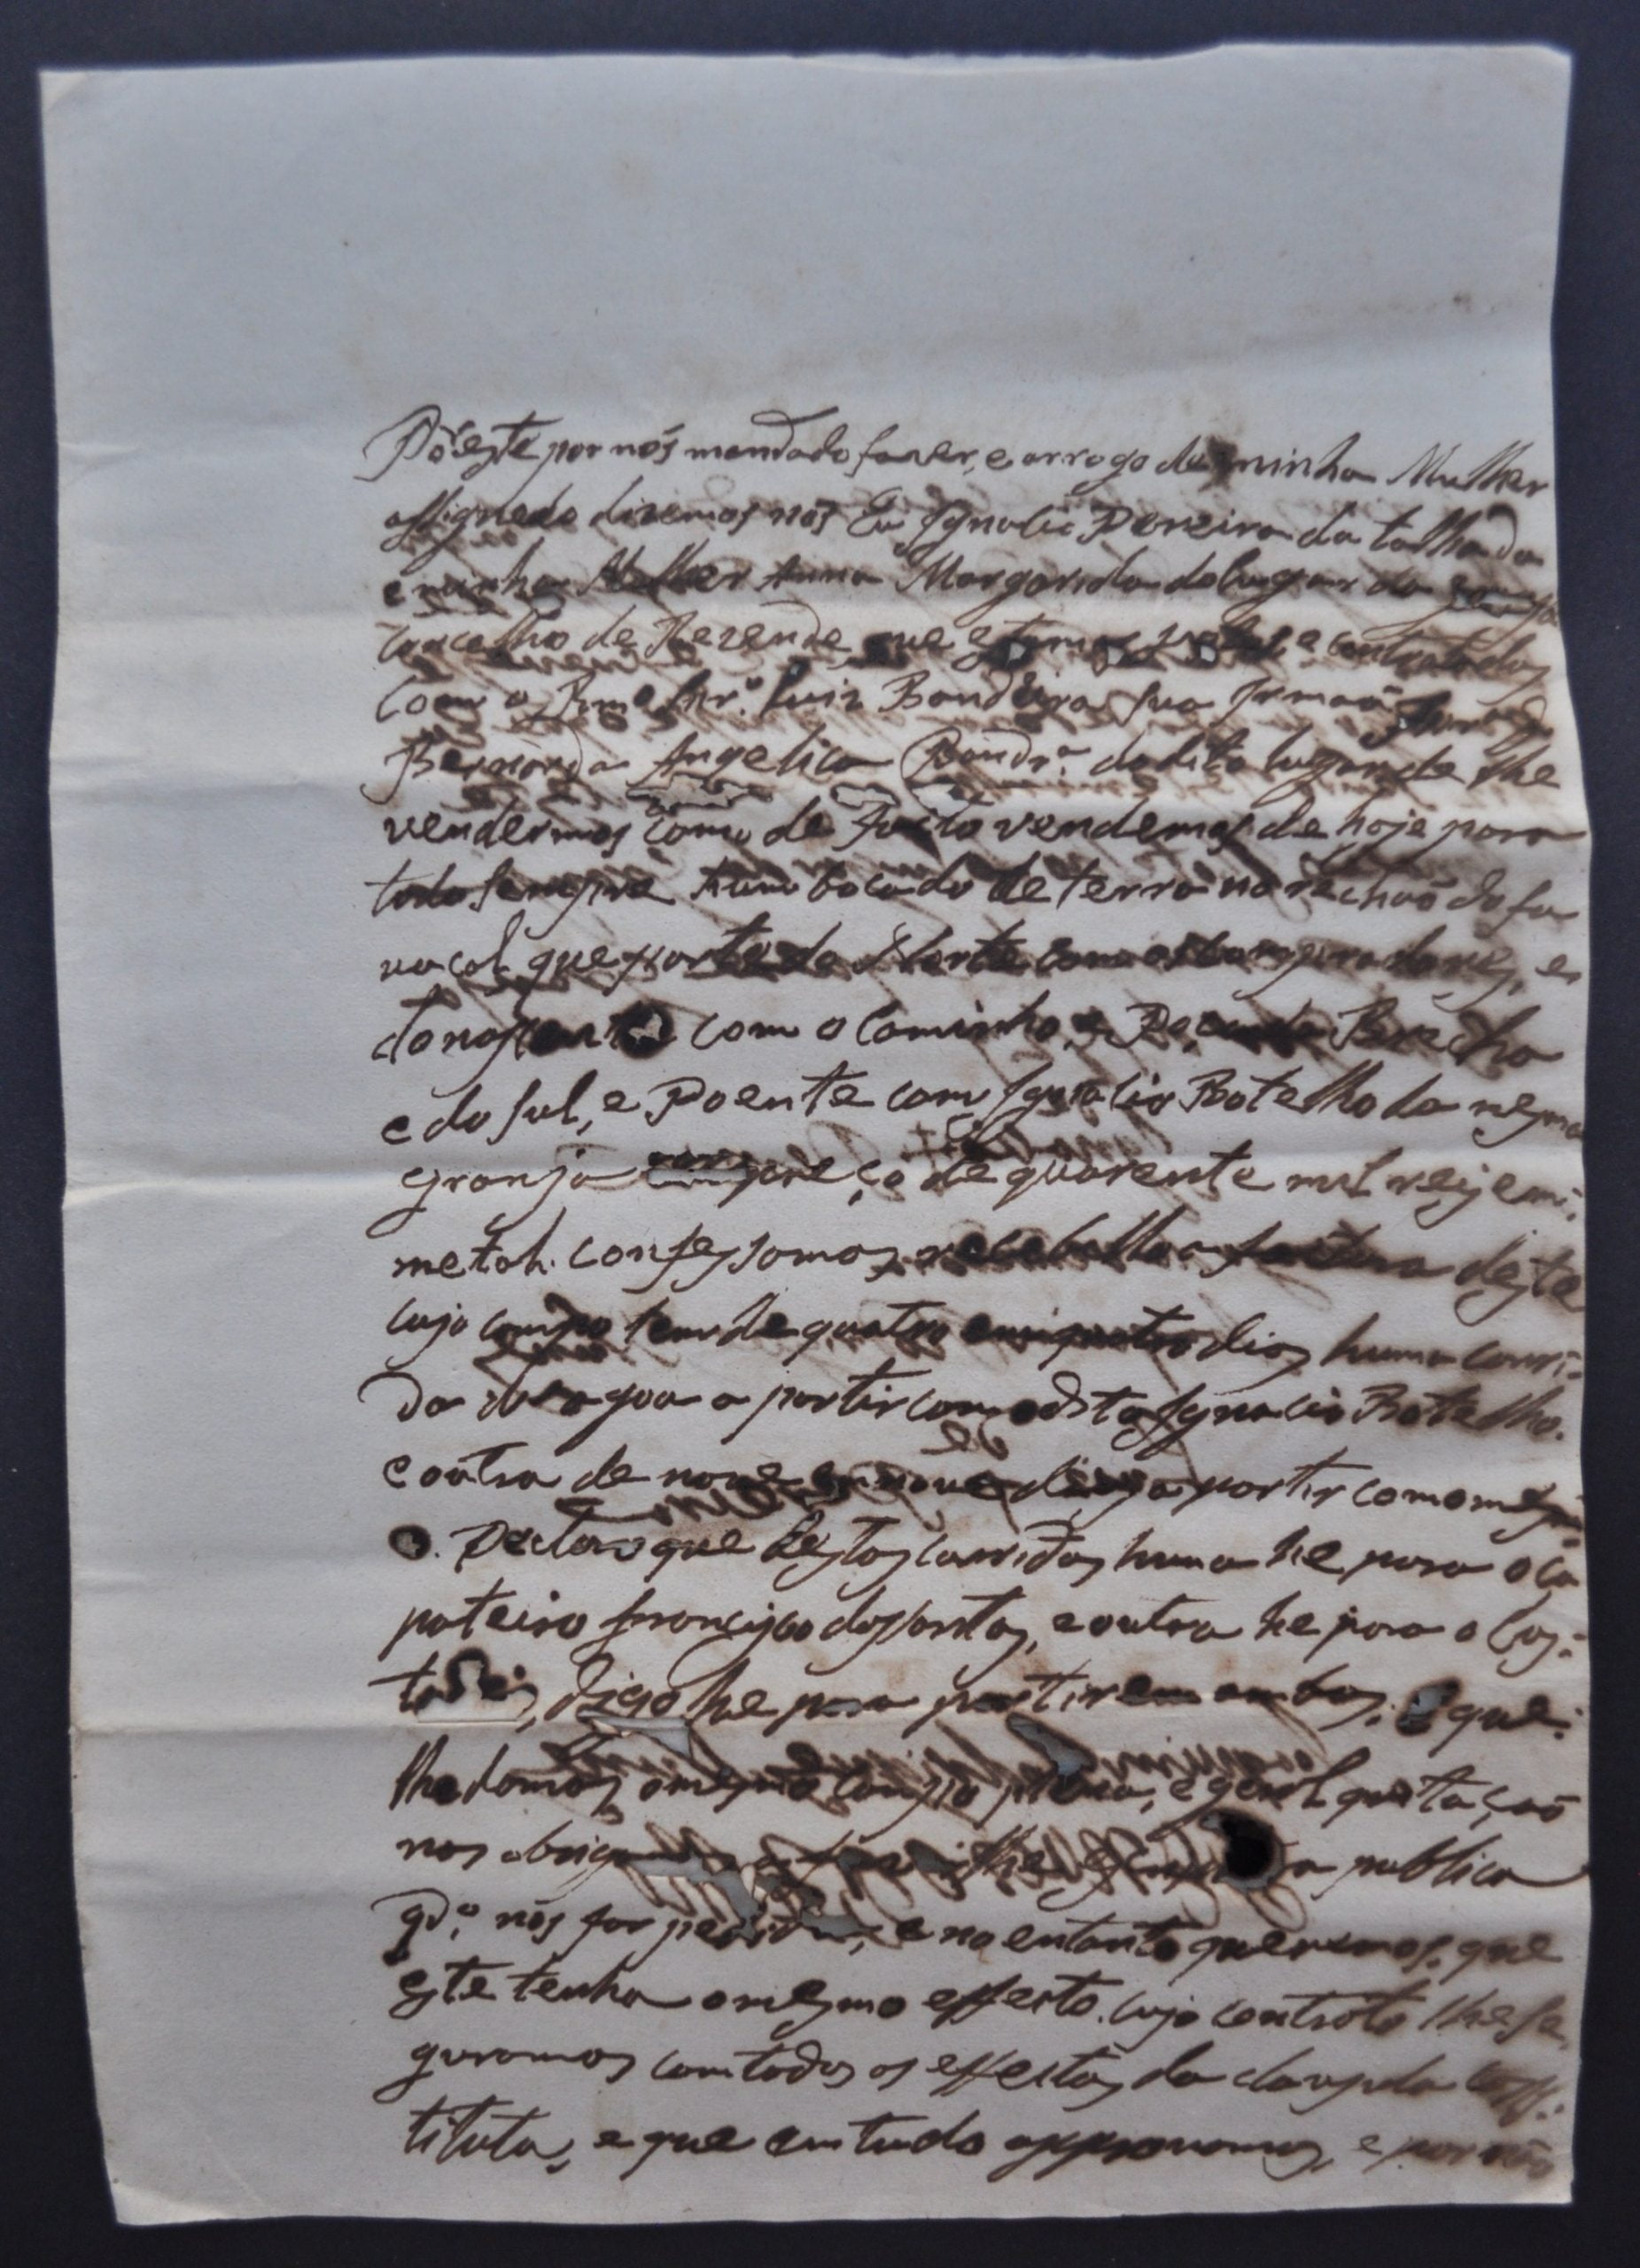 Por este por nós mandado faser, e arrogo de minha Mulher
assignado disemos nós Eu Ignacio Pereira da talhada
e minha Mulher Anna Margarida do lugar da
Concelho de Rezende, que estamos e contratados
com o Snr.º Luiz Bandeira sua Irmaã
Bernarda Angelica Band.ra do dito lugar de lhe
vendermos como de facto vendemos de hoje para
todo sempre hum bocado de terra no rechaõ do fu
nacal que parte do Norte com os Compradores, e
do nascente com o Caminho, e Poça da
e do sul, e Poente com Ignacio Botelho da mesma
granja preço de quarenta mil reis em
metal confessamos recebello a factura deste
cujo campo tem de quatro em quatro dias huma corri
da de agoa a partir com o dito Ignacio Botelho.
e outra de nove em nove dias a partir com o mesmo
Declaro que destas corridas huma he para o Ça
pateiro francisco dos santos, e outra he para o Cas
digo he para partirem ambos. e que
lhe damos o mesmo campo plena, e geral quitação
nos obrigamos lhe publica
qd.º nós for pedida, e no entanto queremos que
este tenha o mesmo effeito. cujo contrato lhe se
guramos com todos os effeitos da clausula cons
tituta, e que em tudo approvamos, e por não